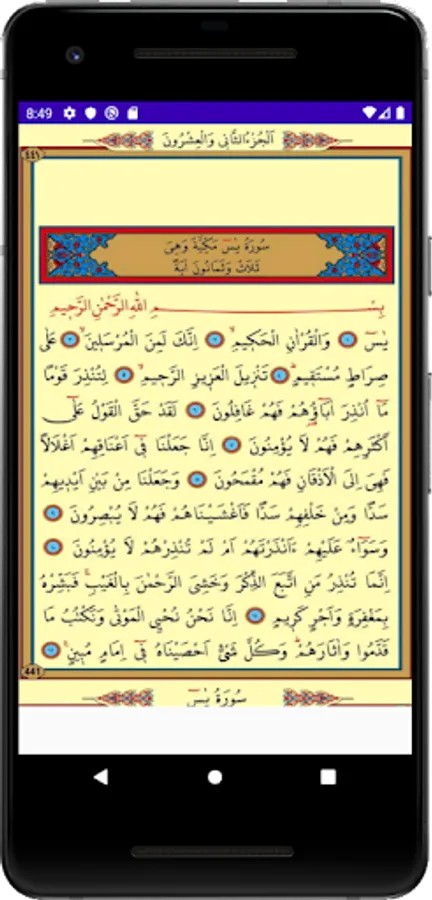 8:49
اَلْجُزْءُ الثَّانِى وَالْعِشْرُونَ
٤٤١
سُورَةُ يٰسٓ مَكِّيَّةٌ وَهِىَ
ثَلَاثٌ وَثَمَانُونَ اٰيَةً
بِسْمِ اللهِ الرَّحْمٰنِ الرَّحِيمِ
يٰسٓ وَالْقُرْاٰنِ الْحَكِيمِ اِنَّكَ لَمِنَ الْمُرْسَلِينَ عَلٰى
صِرَاطٍ مُسْتَقِيمٍ تَنْزِيلَ الْعَزِيزِ الرَّحِيمِ لِتُنْذِرَ قَوْمًا
مَٓا اُنْذِرَ اٰبَٓاؤُ۬هُمْ فَهُمْ غَافِلُونَ لَقَدْ حَقَّ الْقَوْلُ عَلٰٓى
اَكْثَرِهِمْ فَهُمْ لَا يُؤْمِنُونَ اِنَّا جَعَلْنَا فِٓى اَعْنَاقِهِمْ اَغْلَالًا
فَهِىَ اِلَى الْاَذْقَانِ فَهُمْ مُقْمَحُونَ وَجَعَلْنَا مِنْ بَيْنِ اَيْدِيهِمْ
سَدًّا وَمِنْ خَلْفِهِمْ سَدًّا فَاَغْشَيْنَاهُمْ فَهُمْ لَا يُبْصِرُونَ
وَسَوَٓاءٌ عَلَيْهِمْ ءَاَنْذَرْتَهُمْ اَمْ لَمْ تُنْذِرْهُمْ لَا يُؤْمِنُونَ
اِنَّمَا تُنْذِرُ مَنِ اتَّبَعَ الذِّكْرَ وَخَشِىَ الرَّحْمٰنَ بِالْغَيْبِ فَبَشِّرْهُ
بِمَغْفِرَةٍ وَاَجْرٍ كَرِيمٍ اِنَّا نَحْنُ نُحْيِ الْمَوْتٰى وَنَكْتُبُ مَا
قَدَّمُوا وَاٰثَارَهُمْ وَكُلَّ شَىْءٍ اَحْصَيْنَاهُ فِٓى اِمَامٍ مُبِينٍ
441
سُورَةُ يٰسٓ